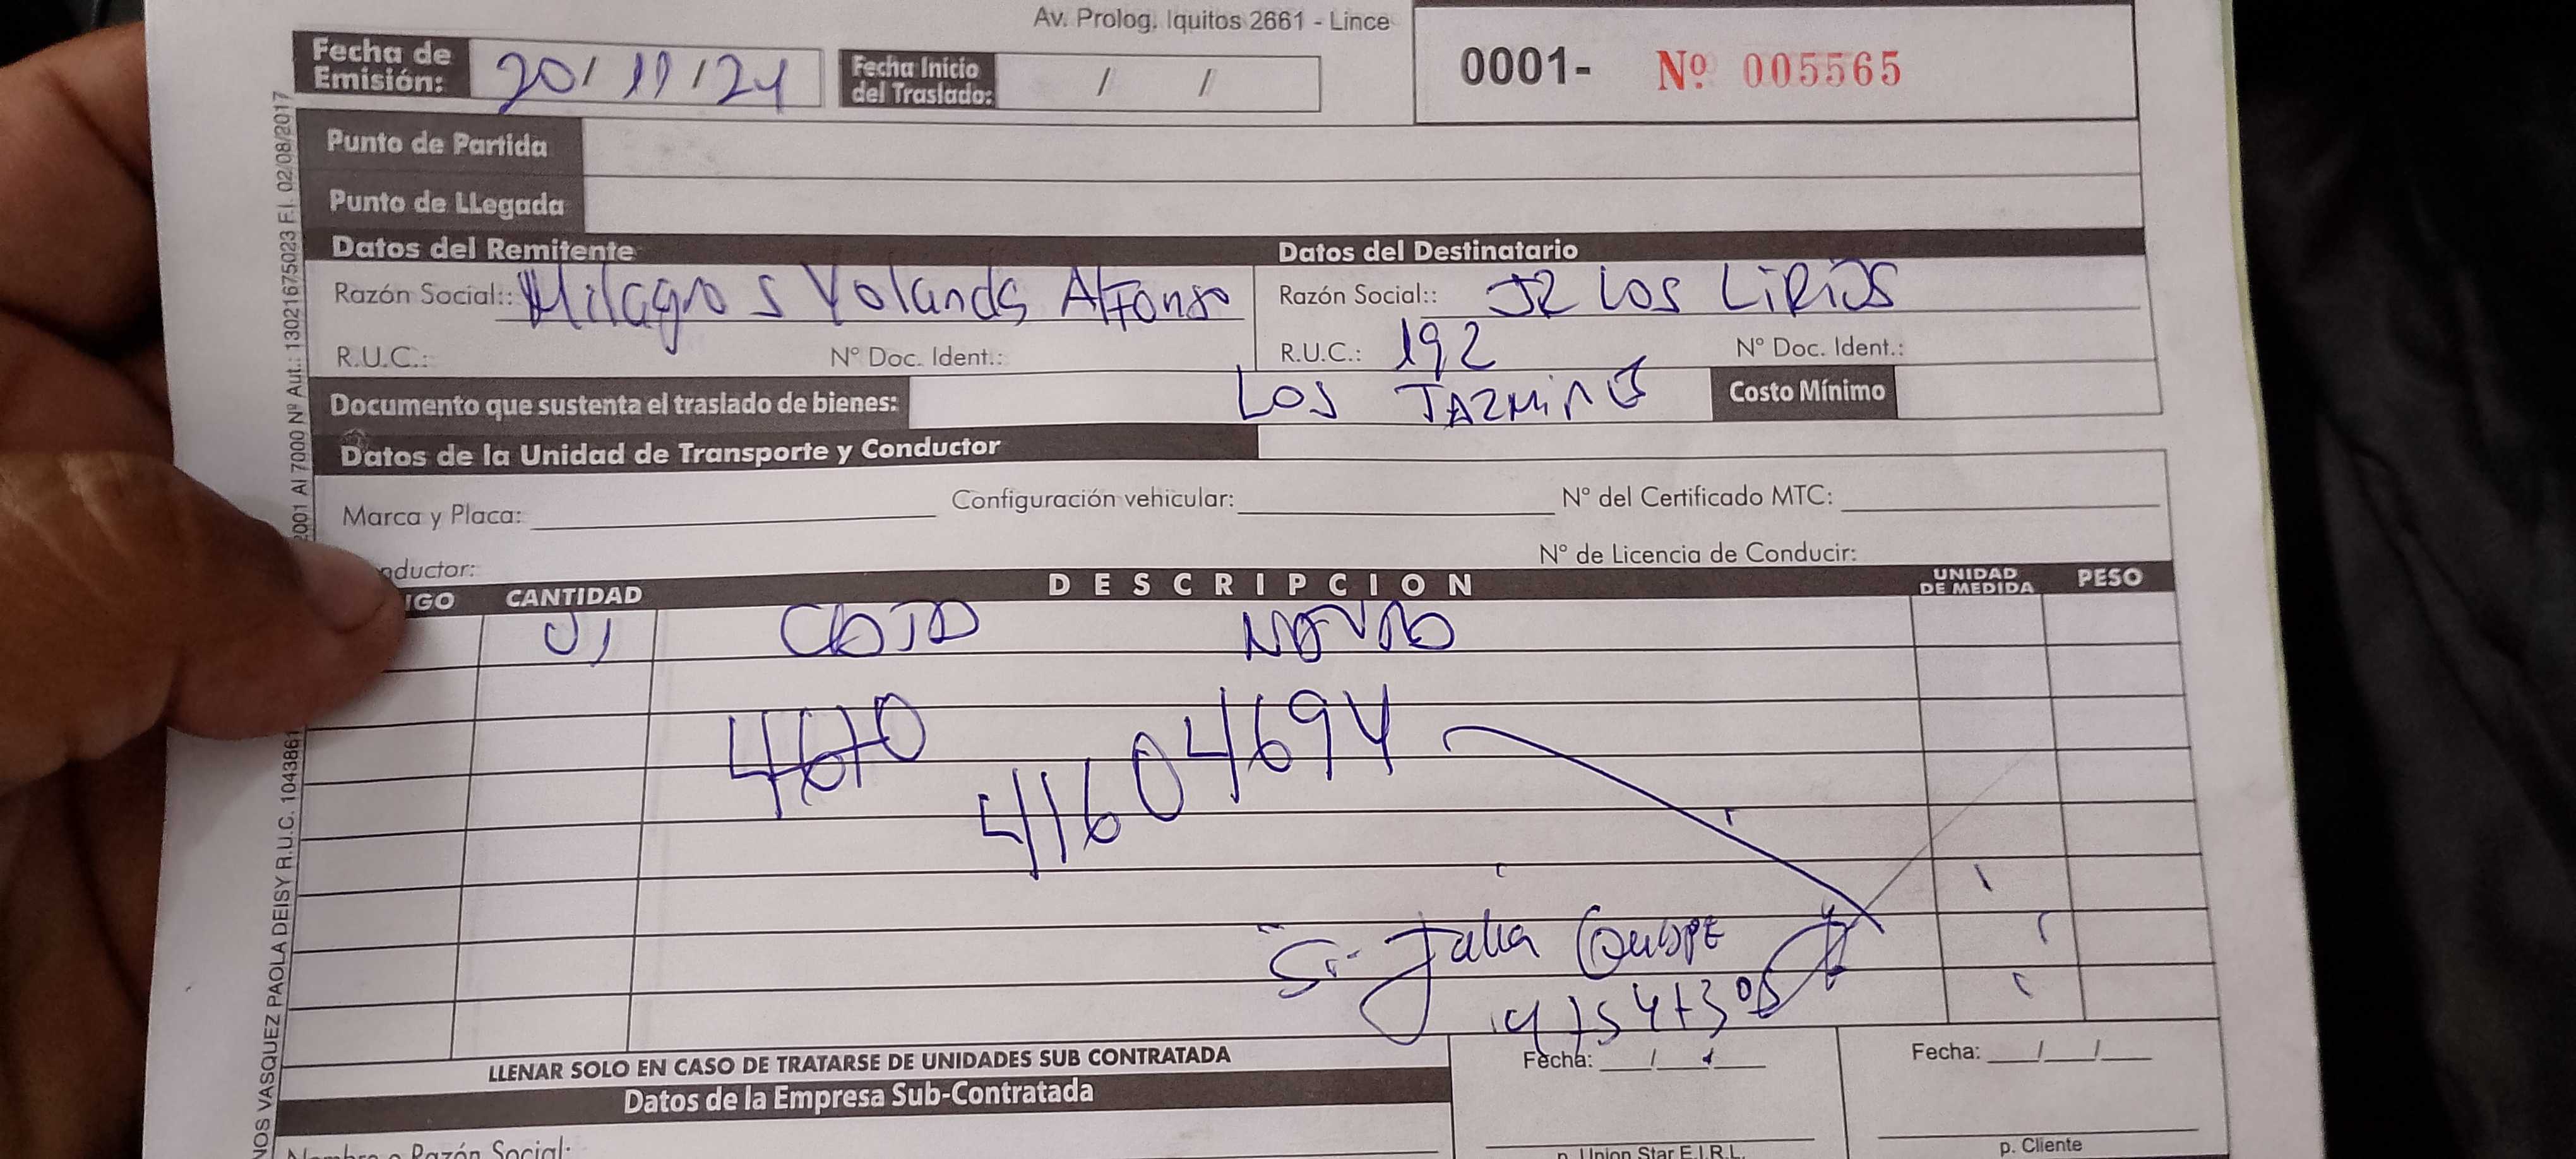 Av. Prolog. Iquitos 2661 - Lince
Fecha de Emisión: 20/11/24 Fecha Inicio del Traslado: / /
0001- Nº 005565
Punto de Partida
Punto de LLegada
Datos del Remitente Datos del Destinatario
Razón Social:: Milagros Yolanda Alfonso Razón Social:: JR LOS LiRiOS
R.U.C.: Nº Doc. Ident.: R.U.C.: 192 Nº Doc. Ident.:
Documento que sustenta el traslado de bienes: LOS JAZMiNES Costo Mínimo
Datos de la Unidad de Transporte y Conductor
Marca y Placa: Configuración vehicular: Nº del Certificado MTC:
nductor: Nº de Licencia de Conducir:
IGO CANTIDAD DESCRIPCION UNIDAD DE MEDIDA PESO
01
4670
4160 4694
Julia Quispe
LLENAR SOLO EN CASO DE TRATARSE DE UNIDADES SUB CONTRATADA
Datos de la Empresa Sub-Contratada
Nombre o Razón Social:
Fecha: / / Fecha: / /
p. Union Star E.I.R.L. p. Cliente
NOS VASQUEZ PAOLA DEISY R.U.C. 1043861
2001 Al 7000 Nº Aut.: 13021675023 F.I. 02/08/2017